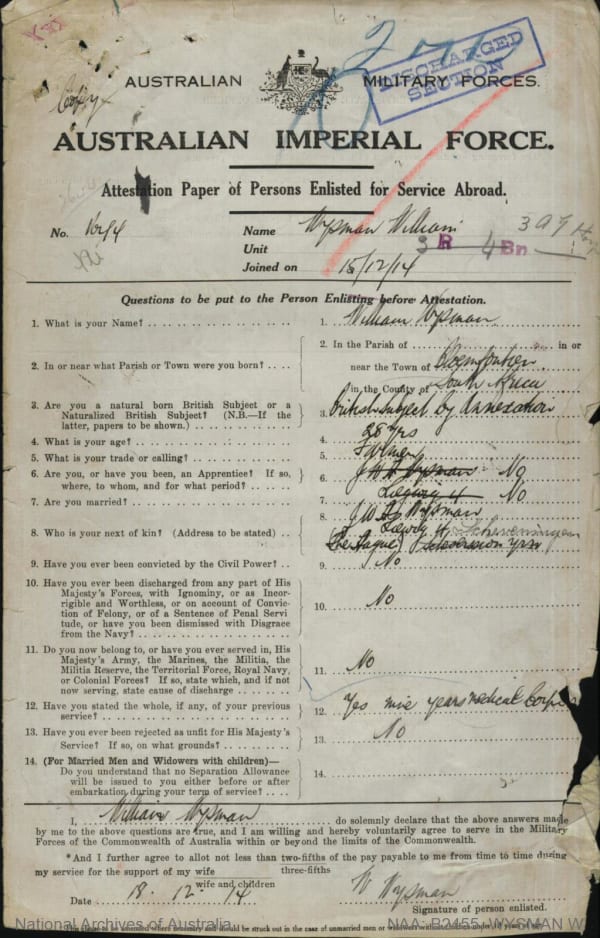 AUSTRALIAN MILITARY FORCES.
DISCHARGED
SECTION
Copy
AUSTRALIAN IMPERIAL FORCE.
Attestation Paper of Persons Enlisted for Service Abroad.
No. Name Wysman William
Unit 3 R 4 Bn
Joined on 15/12/14
Questions to be put to the Person Enlisting before Attestation.
1. What is your Name? 1. William Wysman
2. In or near what Parish or Town were you born? 2. In the Parish of in or
near the Town of Bloemfontein
in the County of South Africa
3. Are you a natural born British Subject or a
Naturalized British Subject? (N.B.—If the
latter, papers to be shown.) 3. British Subject by Annexation
4. What is your age? 4. 28 Yrs
5. What is your trade or calling? 5. Fireman
6. Are you, or have you been, an Apprentice? If so,
where, to whom, and for what period? 6. J W Wysman No
7. Are you married? 7. No
8. Who is your next of kin? (Address to be stated) 8. J W Wysman
Scheveningen
The Hague
9. Have you ever been convicted by the Civil Power? 9. No
10. Have you ever been discharged from any part of His
Majesty's Forces, with Ignominy, or as Incor-
rigible and Worthless, or on account of Convic-
tion of Felony, or of a Sentence of Penal Servi-
tude, or have you been dismissed with Disgrace
from the Navy? 10. No
11. Do you now belong to, or have you ever served in, His
Majesty's Army, the Marines, the Militia, the
Militia Reserve, the Territorial Force, Royal Navy,
or Colonial Forces? If so, state which, and if not
now serving, state cause of discharge 11. No
12. Have you stated the whole, if any, of your previous
service? 12. Yes years medical Corps
13. Have you ever been rejected as unfit for His Majesty's
Service? If so, on what grounds? 13. No
14. (For Married Men and Widowers with children)—
Do you understand that no Separation Allowance
will be issued to you either before or after
embarkation during your term of service? 14.
I, William Wysman do solemnly declare that the above answers made
by me to the above questions are true, and I am willing and hereby voluntarily agree to serve in the Military
Forces of the Commonwealth of Australia within or beyond the limits of the Commonwealth.
*And I further agree to allot not less than two-fifths of the pay payable to me from time to time during
three-fifths
my service for the support of my wife
wife and children
Date 18. 12. 14 W Wysman
Signature of person enlisted.
National Archives of Australia NAA: B2455, WYSMAN W